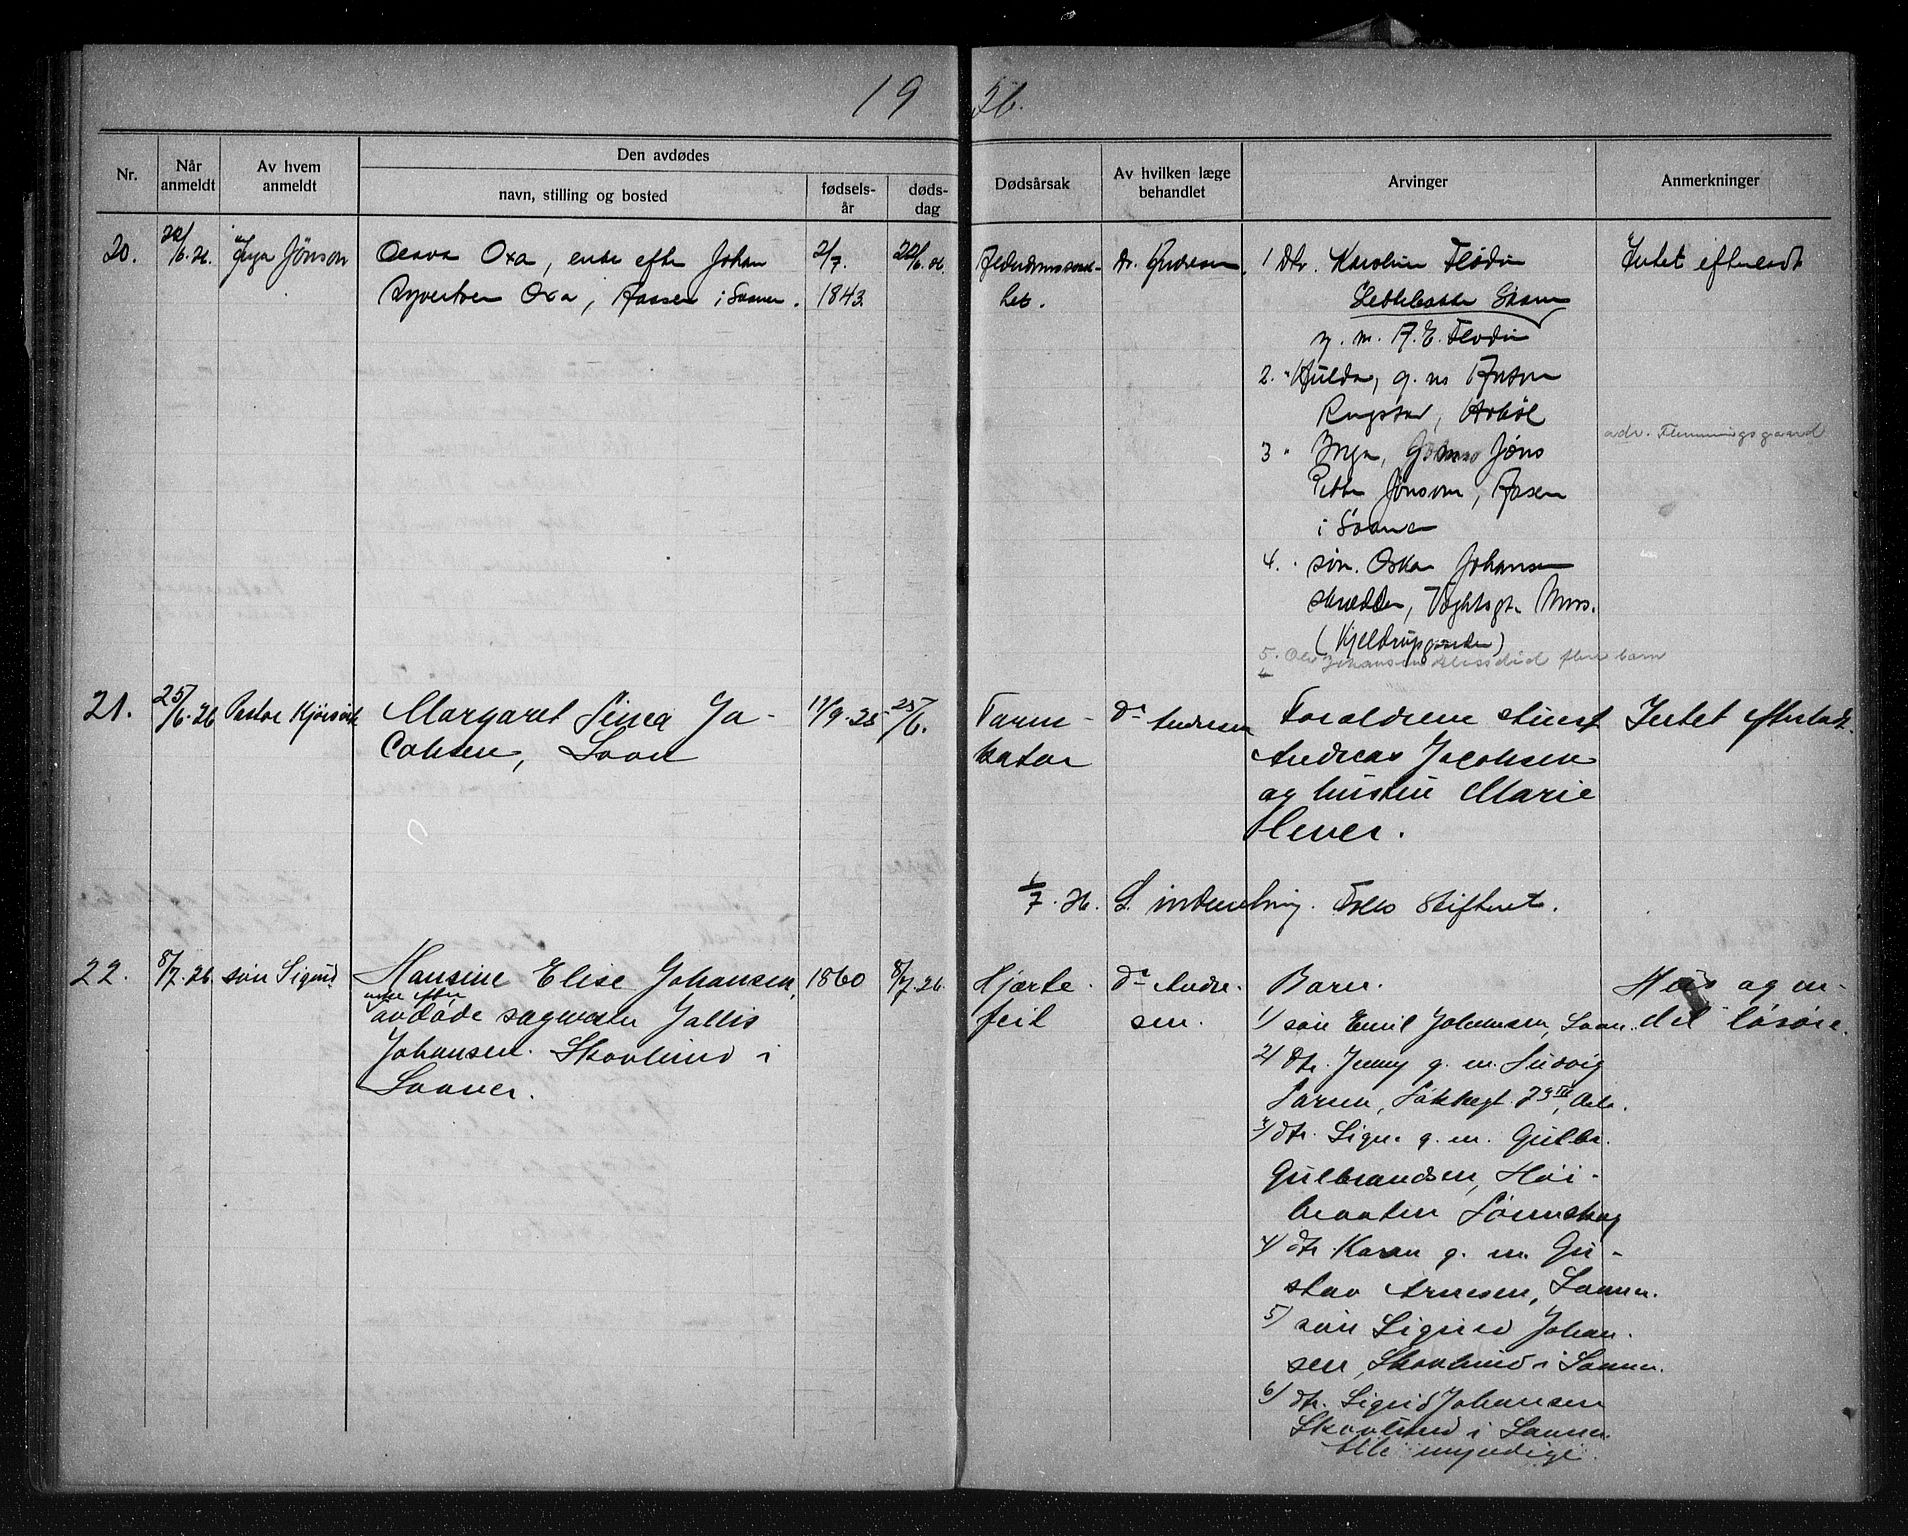 19 26.
Nr.
Når anmeldt
Av hvem anmeldt
Den avdødes
navn, stilling og bosted
fødsels-år
døds-dag
Dødsårsak
Av hvilken læge behandlet
Arvinger
Anmerkninger
20.
Inga Jønson
Olava Oxa, enke efter Johan
Syvertsen Oxa, Aasen i Saaner.
2/7.
1843
22/6.26
Alderdomssvak-
het.
Dr. Andresen.
1 Dtr. Karoline Flodin
g. m. A. E. Flodin
2. " Hulda, g. m. Anton
Rugstad, Hobøl
3 " Inga, Jøns
Petter Jønson, Aasen
i Saaner
4. . søn. Oskar Johansen
skrædder, Vogtsgt. Moss.
(Kjeldrupgården)
5. Olav Johansen flere barn
Intet efterladt
adr. Flemmingsgaard
21.
25/6.26
Pastor Kjørsvik
Margaret Ja-
cobsen, Soon
17/9.25
25/6.
Tarm-
katar
Dr Andresen
Forældrene
Andreas Jacobsen
og hustru Marie
Intet efterladt.
1/7.26.
S. innberetning. Follo skifteret.
22.
8/7.26
søn Sigurd
Hansine Elise Johansen,
enke efter
avdøde sagmester
Johansen. Skovlund i
Saaner.
1860
8/7.26.
Hjerte-
feil
Dr Andre-
sen.
Barn.
1) søn Emil Johansen, Saaner.
2) dtr. Jenny g. m. Ludvig
Larsen, 79 IV, Oslo.
3) dtr. Signe g. m. Gulbr.
Gulbrandsen, Høi-
braaten Lørenskog
4) dtr. Karen g. m. Gu-
stav Arnesen, Saaner.
5) søn Sigurd Johan-
sen, Skovlund i Saaner.
6) dtr. Sigrid Johansen
Skovlund i Saaner.
Alle myndige.
Hus og en-
del løsøre.